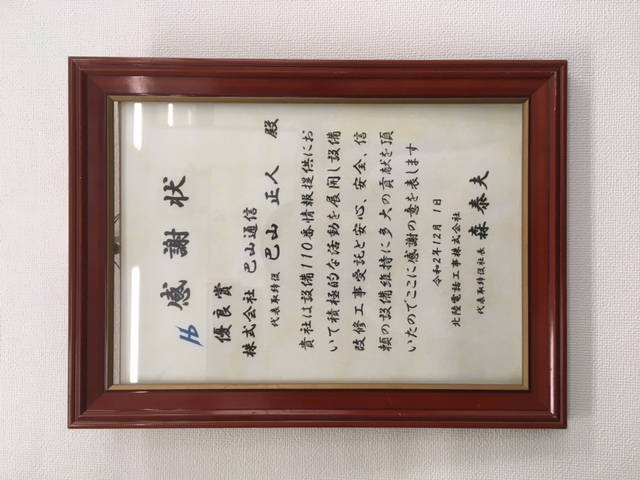 感謝状
優良賞
株式会社 巴山通信
代表取締役 巴山 正人 殿
貴社は設備110番情報提供にお
いて積極的な活動を展開し設備
改修工事受託と安心、安全、信
頼の設備維持に多大の貢献を頂
いたのでここに感謝の意を表します
令和2年12月1日
北陸電話工事株式会社
代表取締役社長 森 泰夫